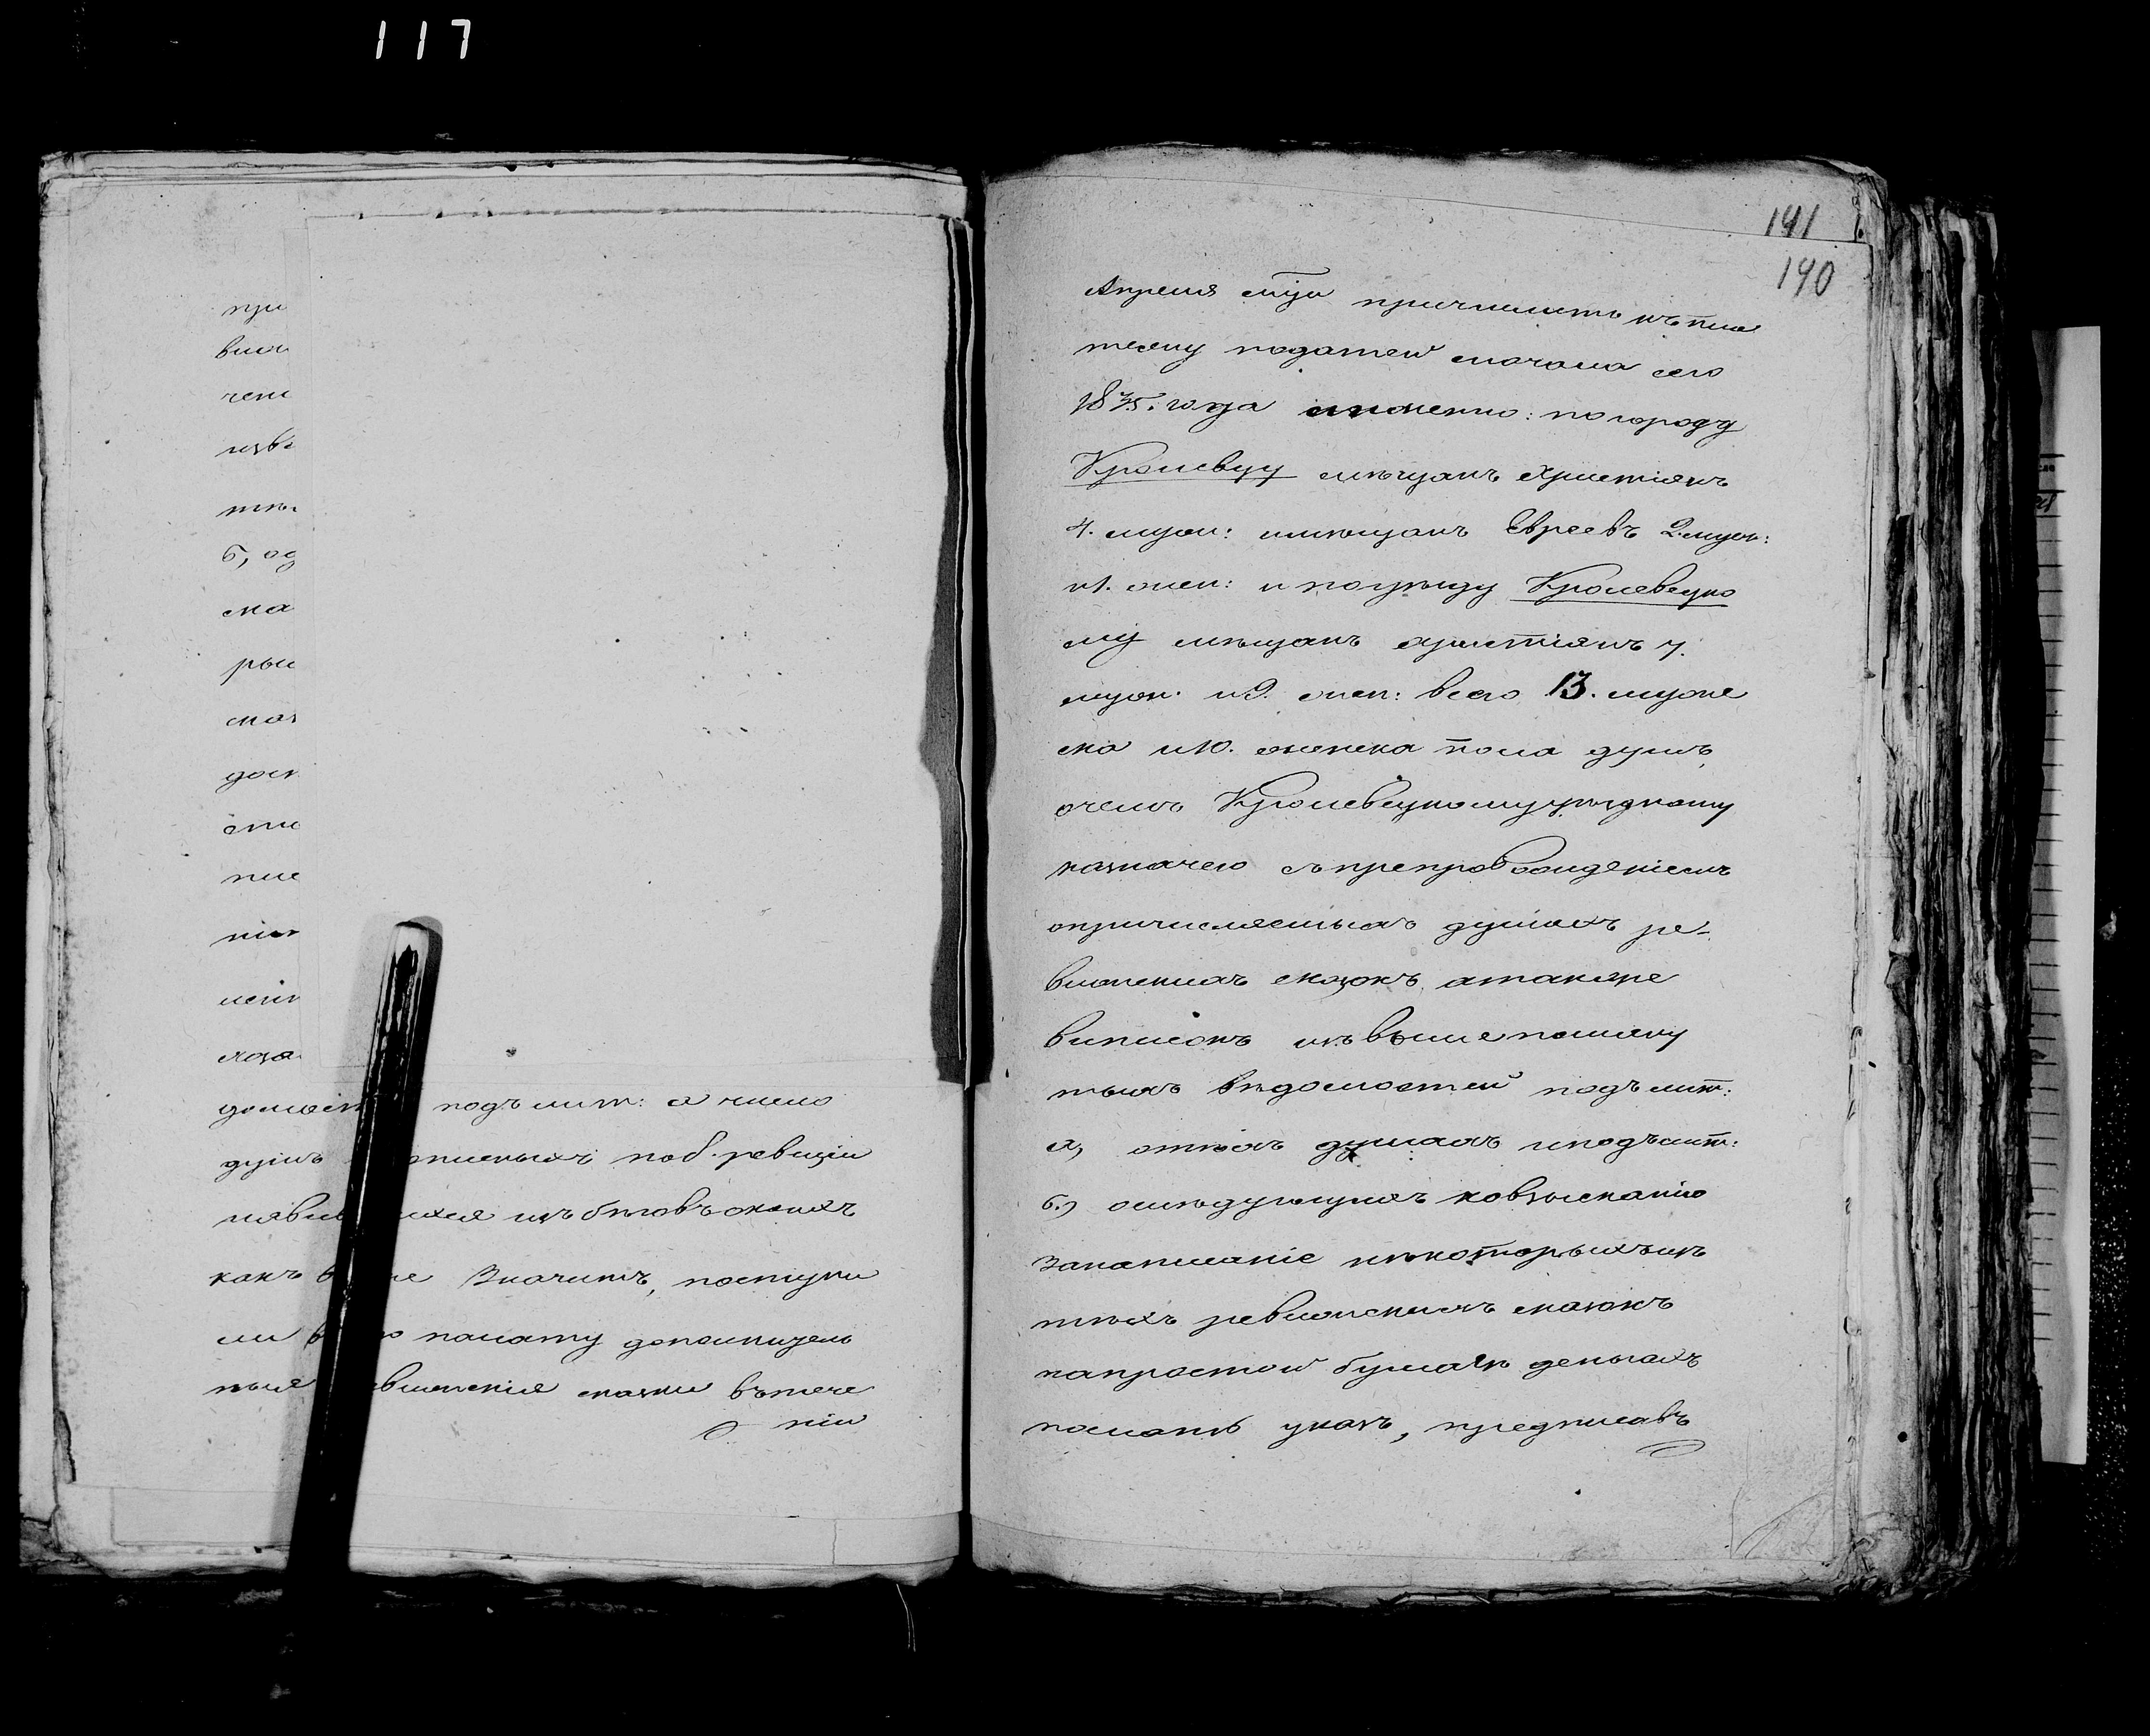 117
при
вшич
чени
извѣ
тнъ
б, од
ска
рыи
сказ
дост
ст
пис
ніи
сказа
домост подъ лит: а число
душъ писныхъ по 8. ревизіи
изъ бѣговъ окоихъ
какъ в ше значитъ, поступи
ли в ю палату дополнитель
ныя ревизскія сказки въ тече
ніи
141
140
Апреля м̃ца причислить къ пла
тежу податей сначала сего
1835. года именно: по городу
Кролевцу мѣщанъ христіянъ
4. муж: имѣщанъ Евреевъ 2. муж:
и 1. жен: и поуѣзду Кролевецко
му мѣщанъ христіянъ 7.
муж: и 9. жен: всего 13. муже
ска и 10. женска пола душъ,
очемъ Кролевецкому уѣздному
казначею съ препровожденіемъ
опричисляемыхъ душахъ ре-
визскихъ сказокъ, атакже
выписокъ изъ вышепомяну
тыхъ вѣдомостей подъ лит:
а, отѣхъ душахъ иподъ лит:
б.) ослѣдующихъ ковзысканію
Занаписаніе нѣкоторыхъ изъ
тѣхъ ревизскихъ сказокъ
напростой бумагѣ деньгахъ
послать указъ, предписавъ